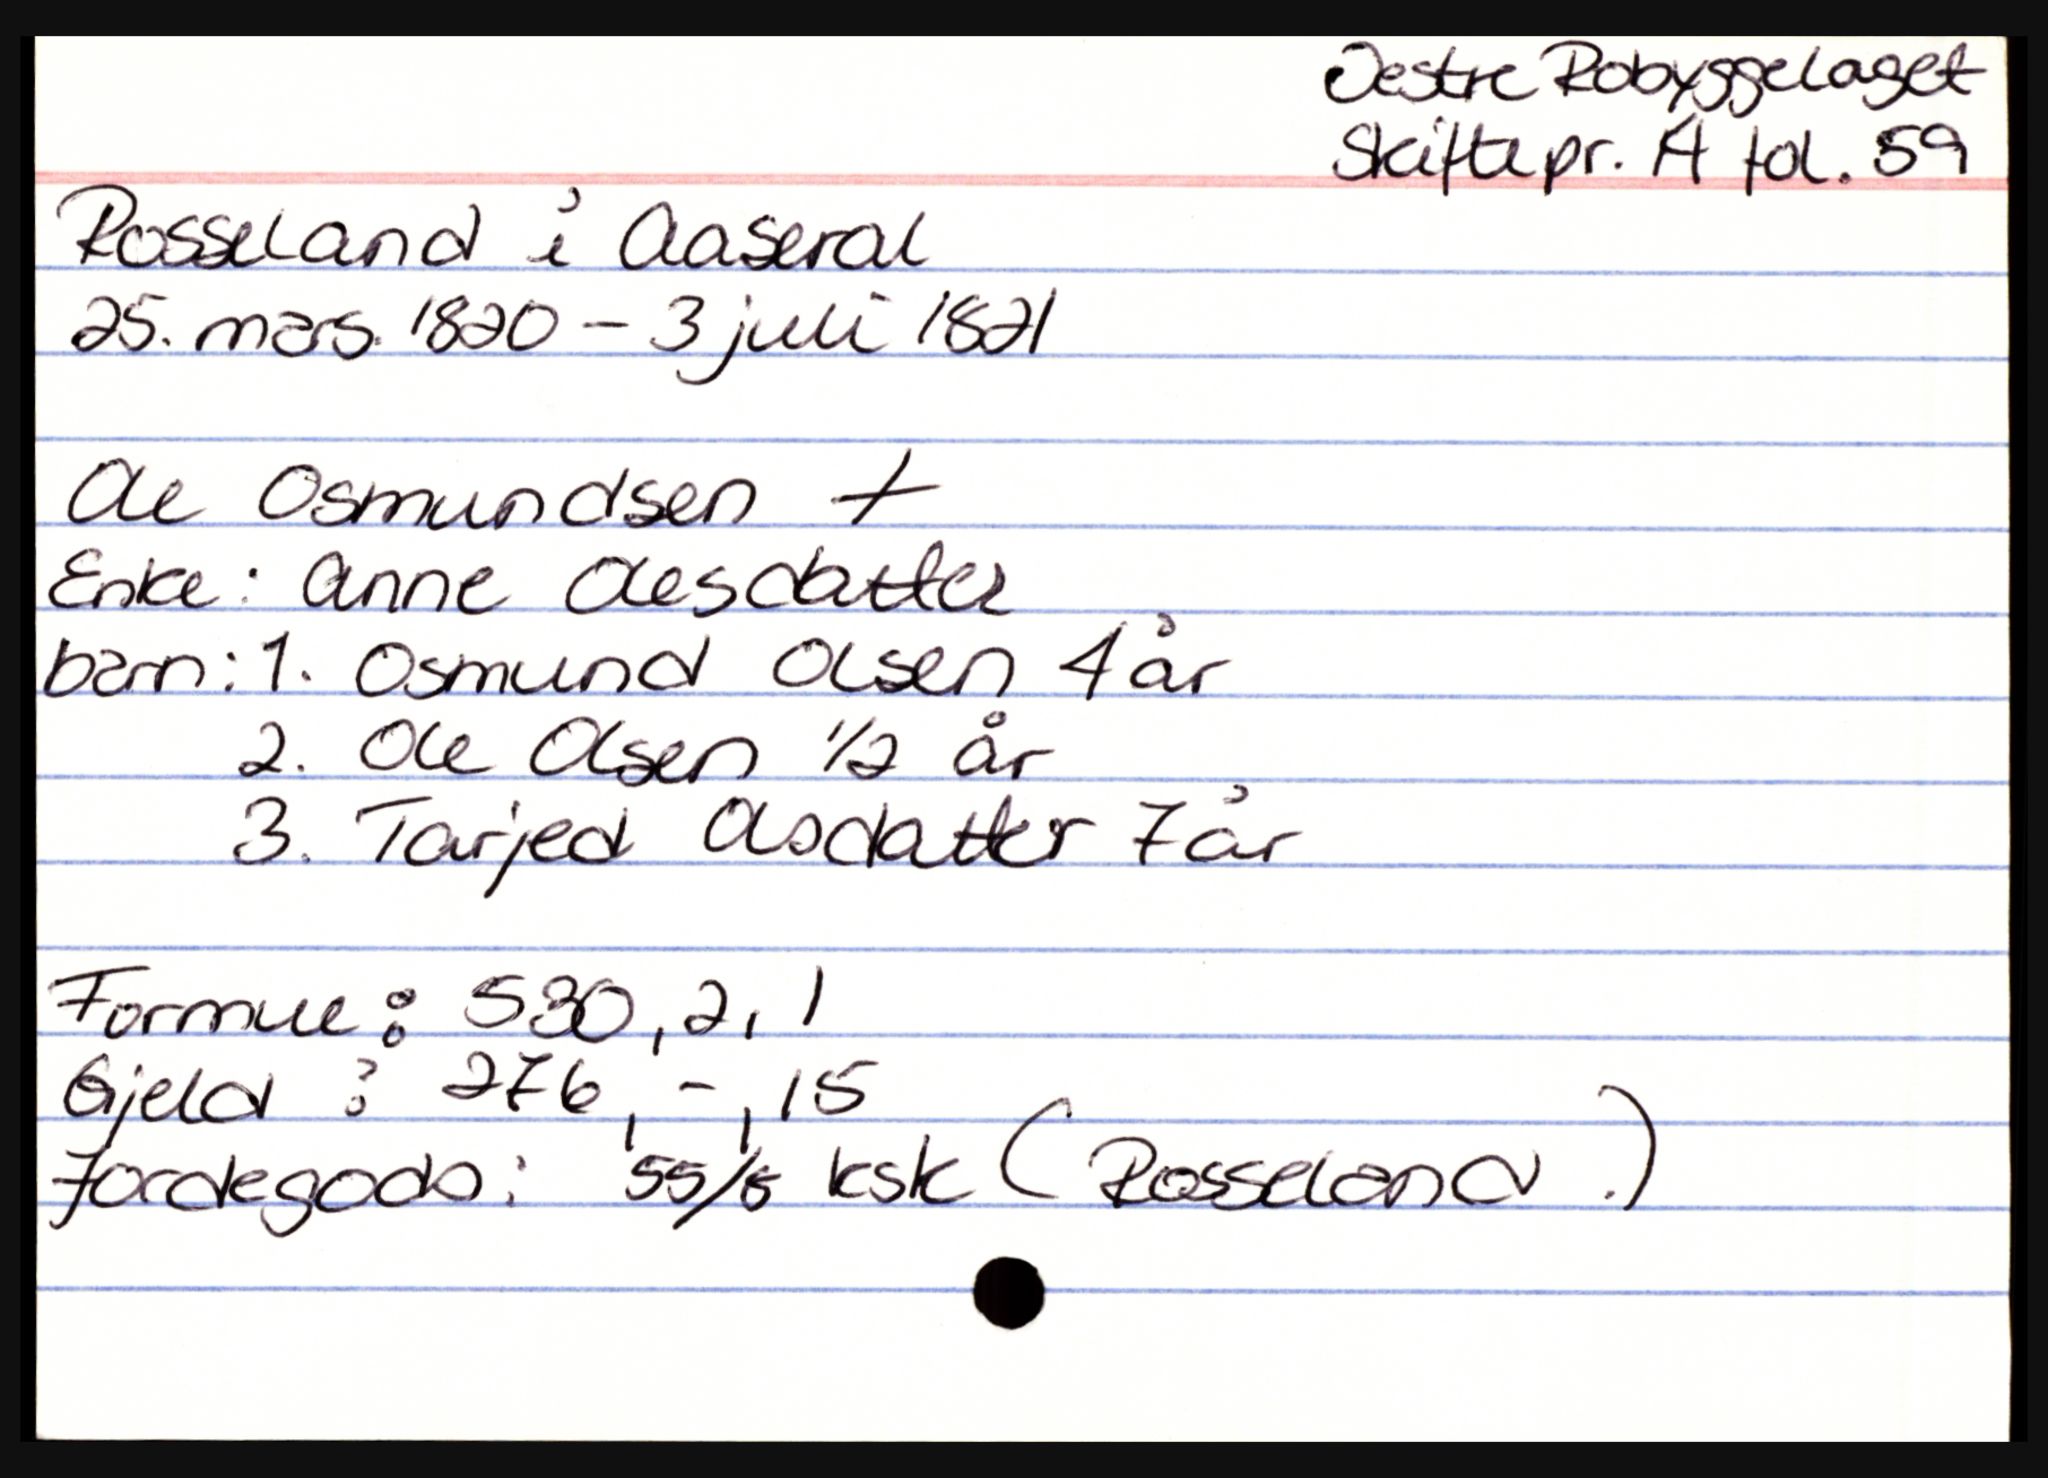 Vestre Robyggelaget
Skiftepr. A fol. 59
Rosseland i Aaseral
25. mars. 1820 - 3 juli 1821
Ole Osmundsen +
Enke: Anne Olesdatter
barn: 1. Osmund Olsen 4 år
2. Ole Olsen 1/2 år
3. Tarjed Olsdatter 7 år
Formue: 530, 2, 1
Gjeld: 276, -, 15
Jordegods: 55/8 ksk (Rosseland.)